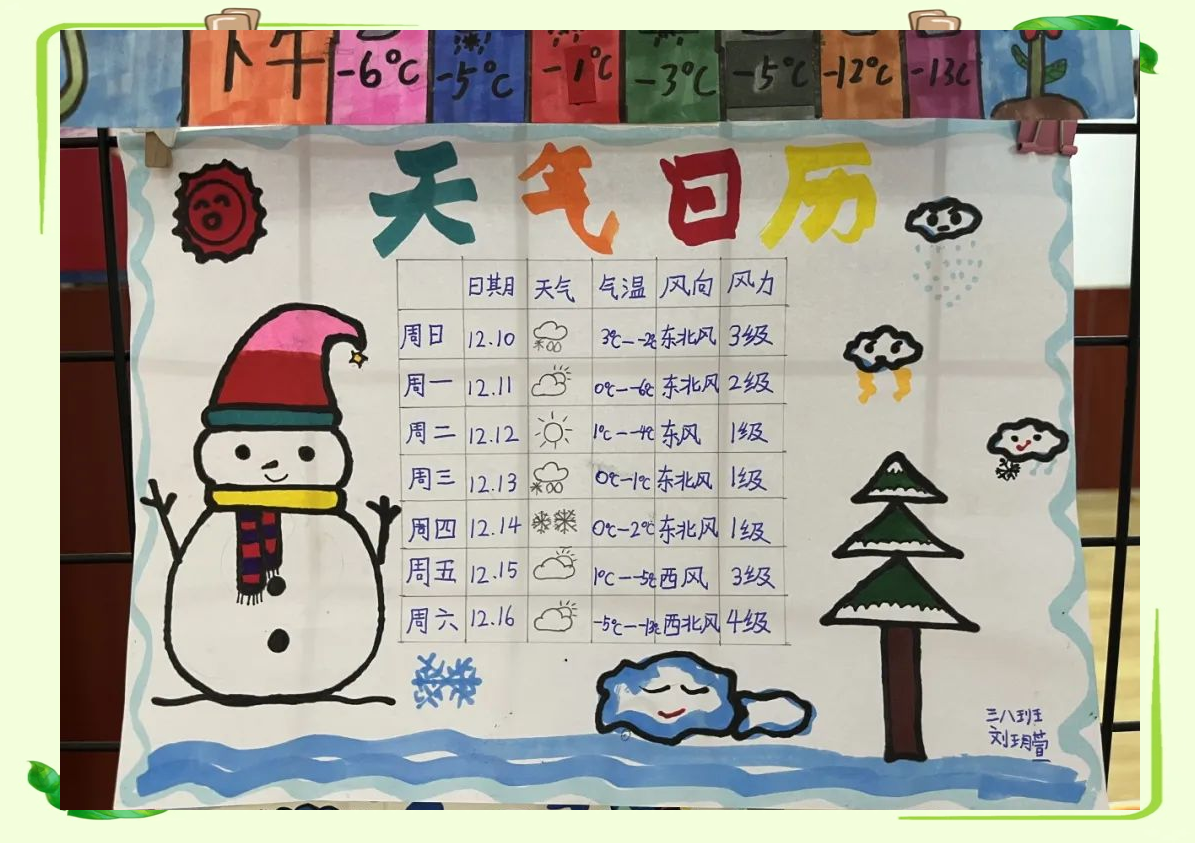 下午 -6°C -5°C -1°C -3°C -5°C -12°C -13C
天气日历
日期 天气 气温 风向 风力
周日 12.10 3℃--2℃ 东北风 3级
周一 12.11 0℃--6℃ 东北风 2级
周二 12.12 1℃--4℃ 东风 1级
周三 12.13 0℃-1℃ 东北风 1级
周四 12.14 0℃-2℃ 东北风 1级
周五 12.15 1℃--5℃ 西风 3级
周六 12.16 -5℃--13℃ 西北风 4级
三八班
刘玥萱